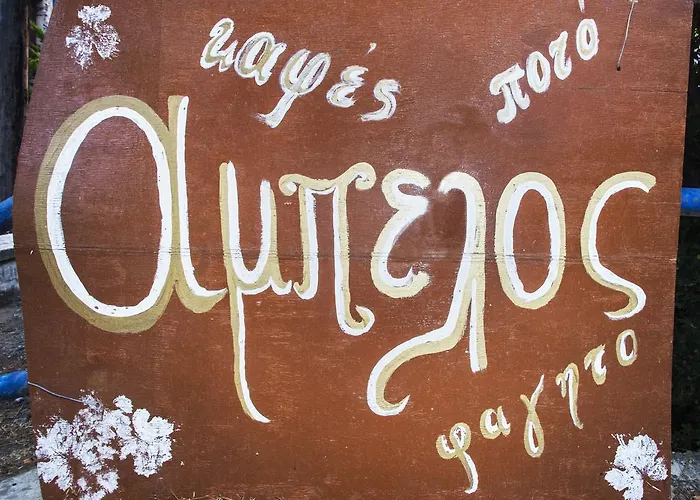 καφές ποτό
αμπελος
φαγητο